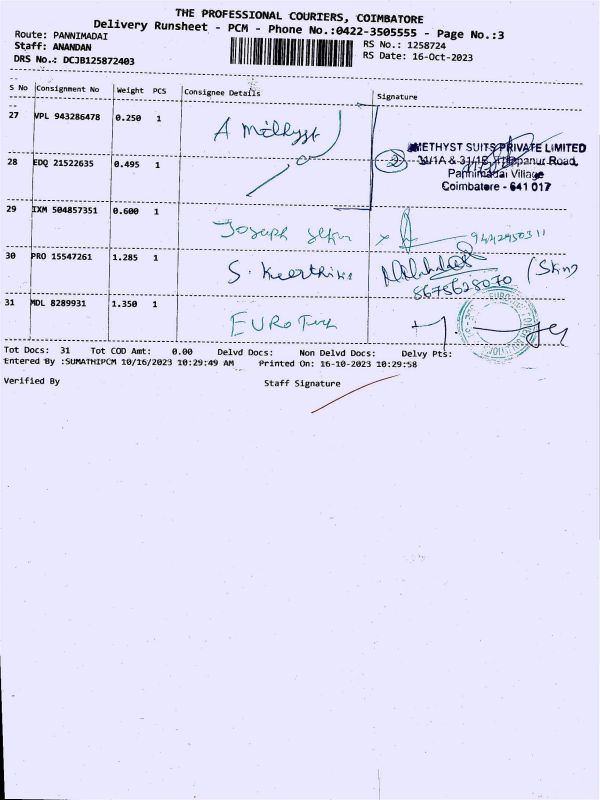 THE PROFESSIONAL COURIERS, COIMBATORE
Delivery Runsheet - PCM - Phone No.:0422-3505555 - Page No.:3
Route: PANNIMADAI
RS No.: 1258724
Staff: ANANDAN
RS Date: 16-Oct-2023
DRS No.: DCJB125872403
S No Consignment No Weight PCS Consignee Details Signature
27 VPL 943286478 0.250 1 A Methyst
METHYST SUITS PRIVATE LIMITED
31/1A & 31/1B, Road,
28 EDQ 21522635 0.495 1 2
Pannimadai Village
Coimbatore - 641 017
29 IXM 504857351 0.600 1 Joseph x 9442950311
30 PRO 15547261 1.285 1 S. (Skin)
8675628070
31 MDL 8289931 1.350 1 EURO Tech
Tot Docs: 31 Tot COD Amt: 0.00 Delvd Docs: Non Delvd Docs: Delvy Pts:
Entered By :SUMATHIPCM 10/16/2023 10:29:49 AM Printed On: 16-10-2023 10:29:58
Verified By Staff Signature